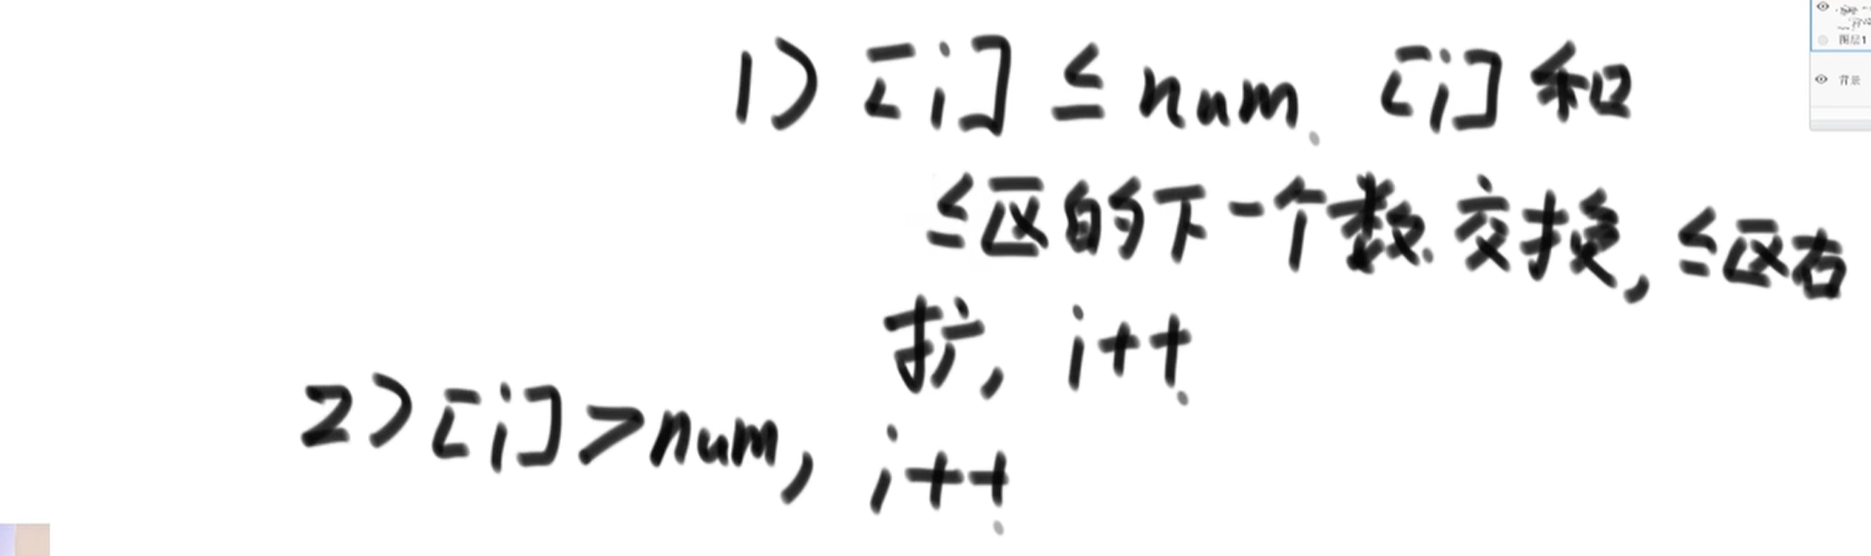 1) [i] ≤ num、[i] 和
≤区的下一个数交换, ≤区右
扩, i++
2) [i] > num, i++
图层1
背景